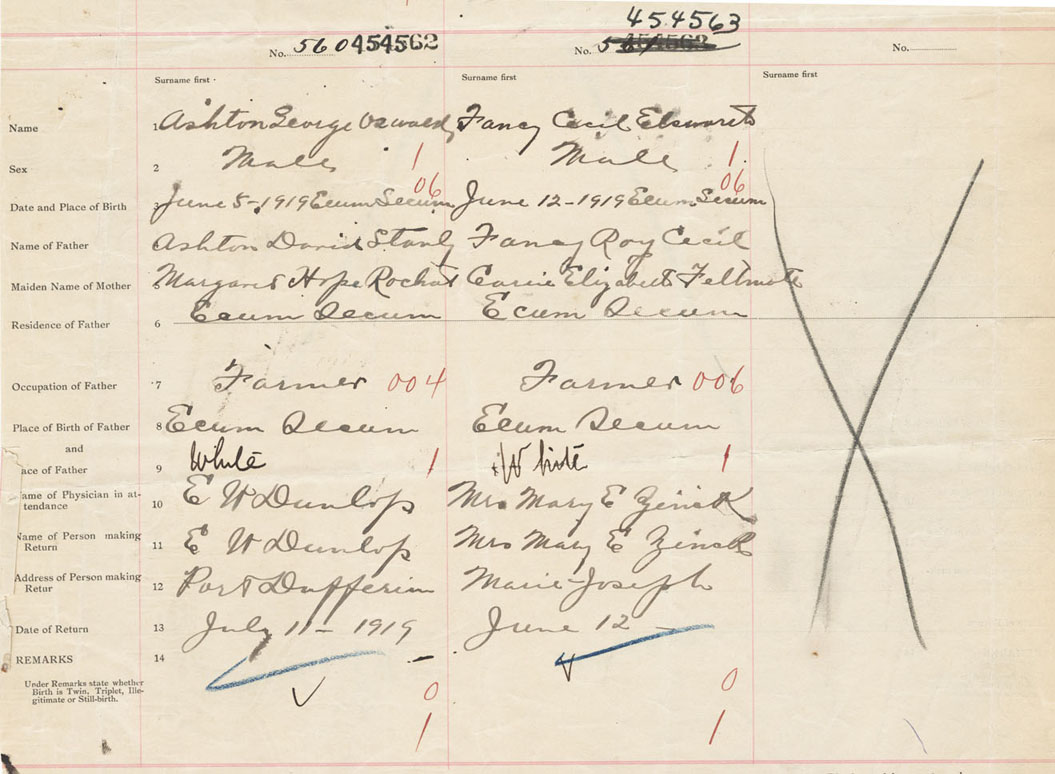 454563
No. 560454562 No. 454562 No.
Surname first Surname first Surname first
Name 1 Ashton George Oswald Fancy Cecil Elsworth
Sex 2 Male 1 Male 1
06 06
Date and Place of Birth 3 June 5-1919 Ecum Secum June 12-1919 Ecum Secum
Name of Father Ashton David Stanly Fancy Roy Cecil
Maiden Name of Mother Margaret Hope Carrie Elizabeth
Residence of Father 6 Ecum Secum Ecum Secum
Occupation of Father 7 Farmer 004 Farmer 006
Place of Birth of Father 8 Ecum Secum Ecum Secum
and
ace of Father 9 White 1 White 1
ame of Physician in at-
tendance 10 E W Dunlop Mrs Mary E Zinck
Name of Person making
Return 11 E W Dunlop Mrs Mary E Zinck
Address of Person making
Retur 12 Port Dufferin Marie Joseph
Date of Return 13 July 11-1919 June 12
REMARKS 14
Under Remarks state whether
Birth is Twin, Triplet, Ille-
gitimate or Still-birth.
0 0
1 1